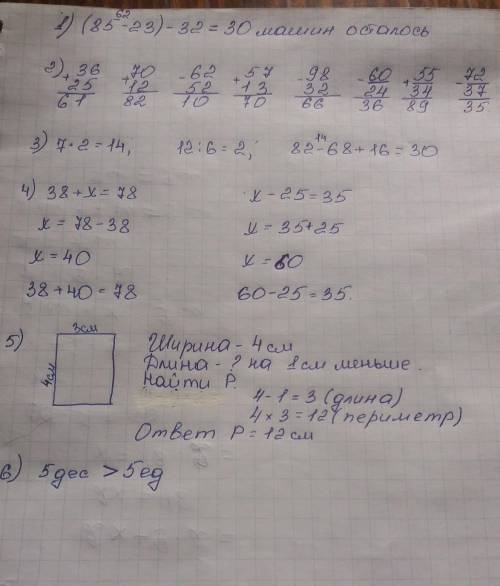 62
1) (85-23)-32=30 машин осталось
2) +36 +70 -62 +57 -98 -60 +55 -72
25 12 52 13 32 24 34 37
61 82 10 70 66 36 89 35
14
3) 7·2=14, 12:6=2, 82-68+16=30
4) 38+х=78 х-25=35
х=78-38 х=35+25
х=40 х=60
38+40=78 60-25=35.
5) 3см Ширина-4см
4см Длина-? на 1см меньше.
Найти P.
4-1=3 (длина)
4×3=12 (периметр)
Ответ P=12см
6) 5дес >5ед